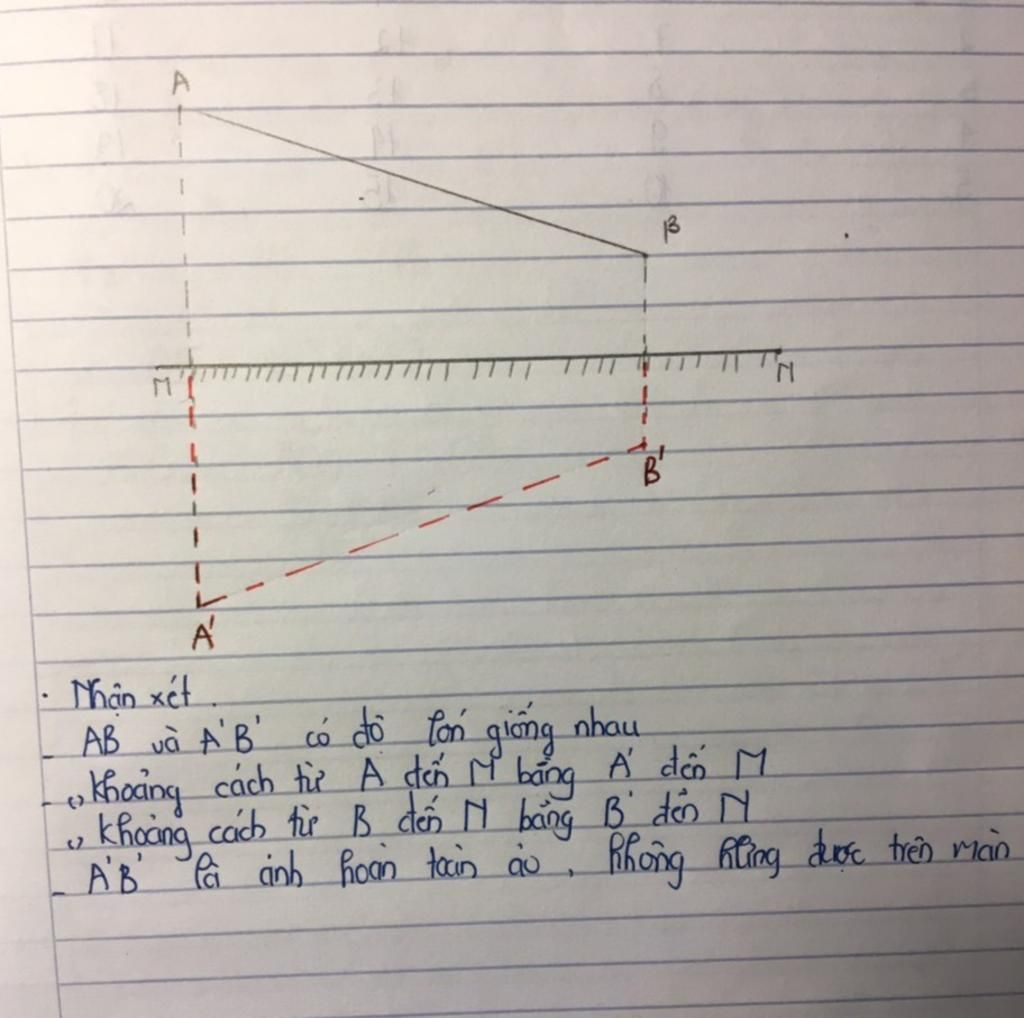 A
B
M
N
B'
A'
· Nhận xét.
- AB và A'B' có độ lớn giống nhau
- (,) khoảng cách từ A đến M bằng A' đến M
(,) khoảng cách từ B đến N bằng B' đến N
- A'B' là ảnh hoàn toàn ảo, không hứng được trên màn